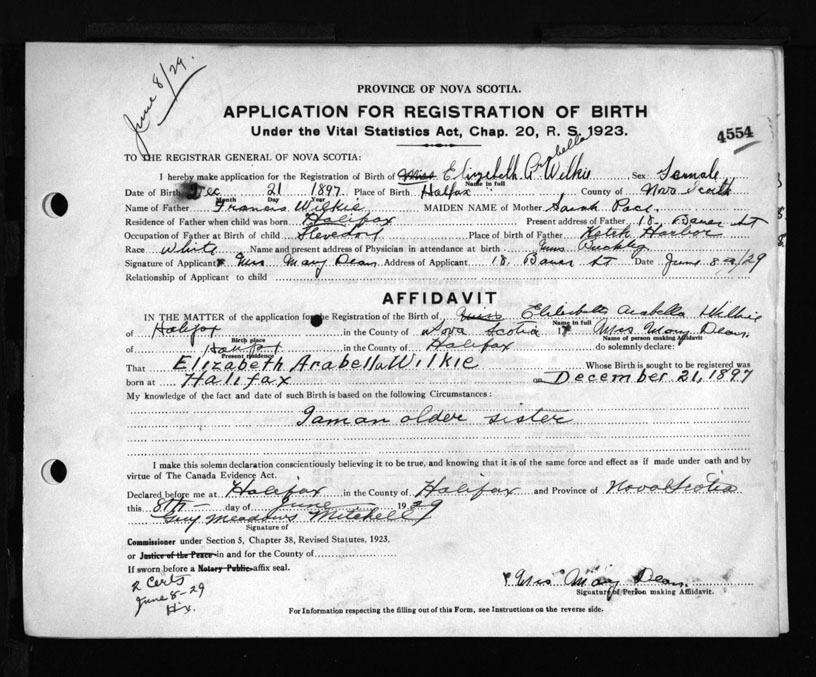 June 8/29.
PROVINCE OF NOVA SCOTIA.
APPLICATION FOR REGISTRATION OF BIRTH
Under the Vital Statistics Act, Chap. 20, R. S. 1923.
4554
TO THE REGISTRAR GENERAL OF NOVA SCOTIA:
Arabella
I hereby make application for the Registration of Birth of Miss Elizebeth A. Wilkie Sex Female
Name in full
Date of Birth Dec 21 1897. Place of Birth Halifax County of Nova Scotia
Month Day Year
Name of Father Francis Wilkie MAIDEN NAME of Mother Sarah Pace
Residence of Father when child was born Halifax Present address of Father 18 Bauer St
Occupation of Father at Birth of child Stevedore Place of Birth of Father Ketch Harbor
Race White Name and present address of Physician in attendance at birth Mrs Buckley
Signature of Applicant Mrs Mary Dean Address of Applicant 18. Bauer St Date June 8th/29
Relationship of Applicant to child
AFFIDAVIT
IN THE MATTER of the application for the Registration of the Birth of Miss Elizebeth Arabella Wilkie
Name in full
of Halifax in the County of Nova Scotia I, Mrs Mary Dean
Birth place Name of person making Affidavit
of Halifax in the County of Halifax do solemnly declare:
Present residence
That Elizabeth Arabella Wilkie Whose Birth is sought to be registered was
born at Halifax on December 21, 1897
My knowledge of the fact and date of such Birth is based on the following Circumstances:
I am an older sister
I make this solemn declaration conscientiously believing it to be true, and knowing that it is of the same force and effect as if made under oath and by
virtue of The Canada Evidence Act.
Declared before me at Halifax in the County of Halifax and Province of Nova Scotia
this 8th day of June 1929
Guy Meadows Mitchell
Signature of
Commissioner under Section 5, Chapter 38, Revised Statutes, 1923,
or Justice of the Peace in and for the County of
If sworn before a Notary Public affix seal.
2 Certs
June 8-29
Hx.
Mrs Mary Dean
Signature of Person making Affidavit.
For Information respecting the filling out of this Form, see Instructions on the reverse side.